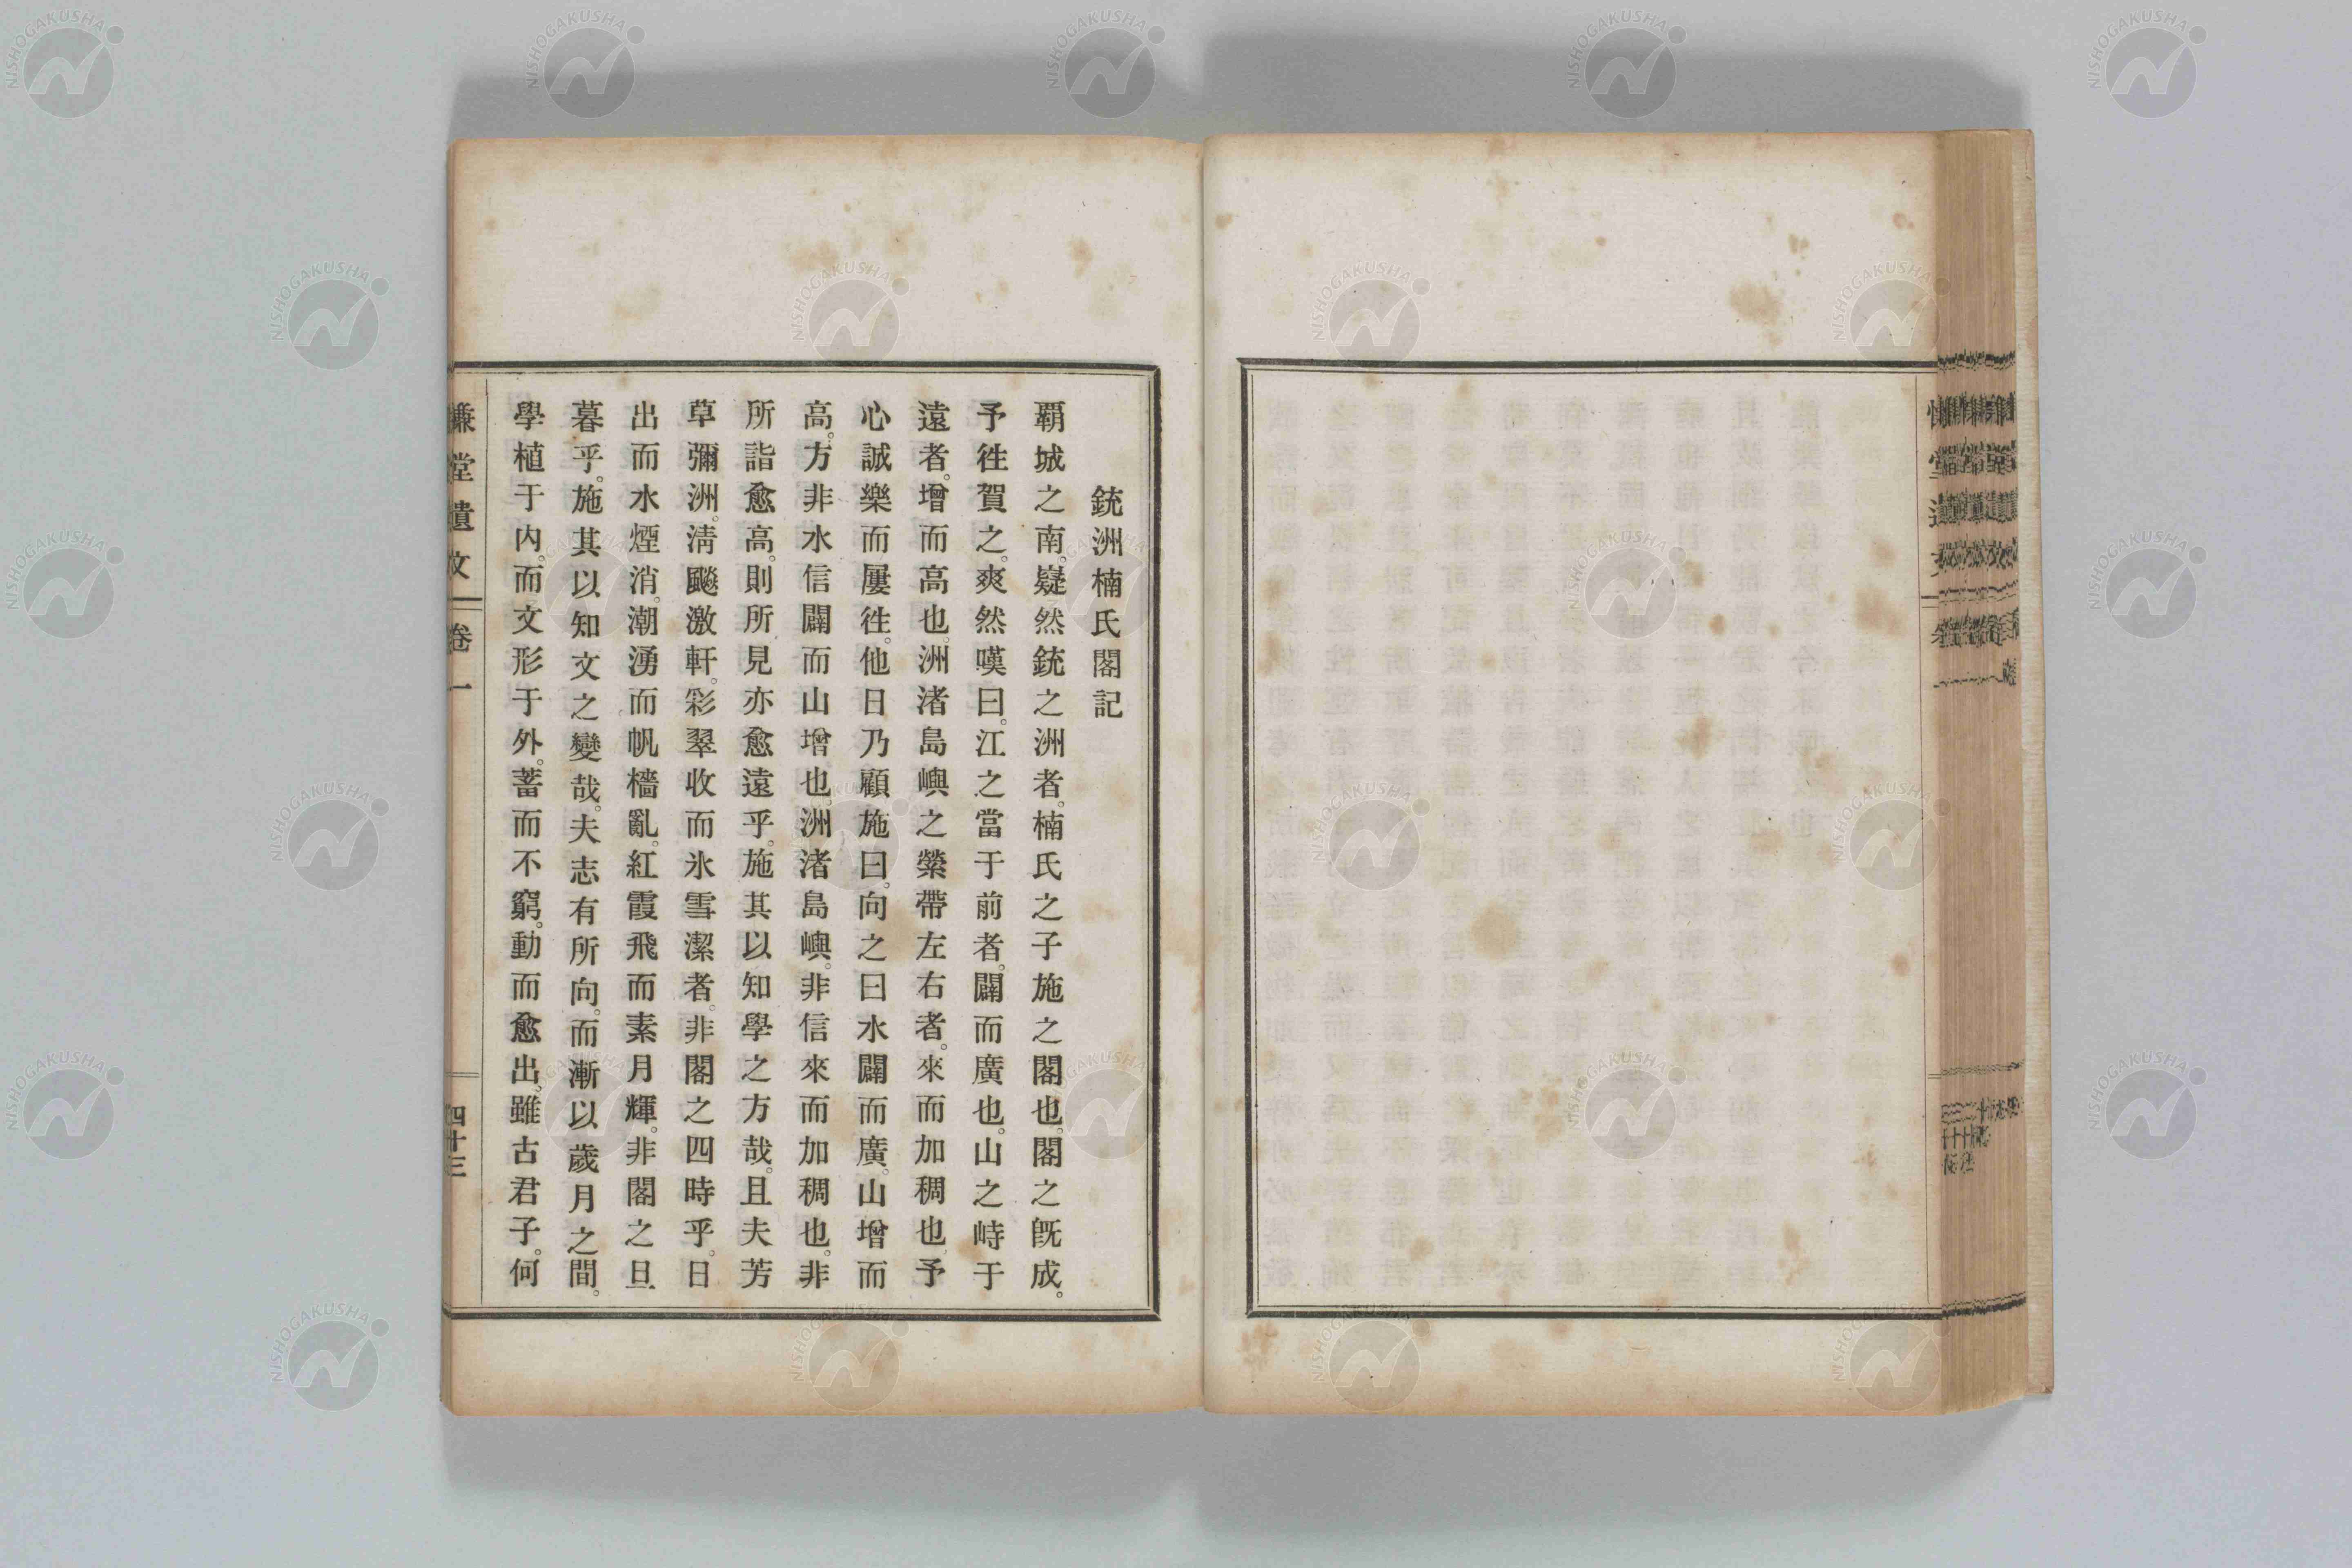 銃洲楠氏閣記
覇城之南。嶷然銃之洲者。楠氏之子施之閣也。閣之既成。
予徃賀之。爽然嘆曰。江之當于前者。闢而廣也。山之峙于
遠者。增而高也。洲渚島嶼之縈帶左右者。來而加稠也。予
心誠樂而屢徃。他日乃顧施曰。向之曰水闢而廣。山增而
高。方非水信闢而山增也。洲渚島嶼。非信來而加稠也。非
所詣愈高。則所見亦愈遠乎。施其以知學之方哉。且夫芳
草彌洲。淸颷激軒。彩翠收而氷雪潔者。非閣之四時乎。日
出而水煙消。潮湧而帆檣亂。紅霞飛而素月輝。非閣之旦
暮乎。施其以知文之變哉。夫志有所向。而漸以歲月之間。
學植于内。而文形于外。蓄而不窮。動而愈出。雖古君子。何
慊堂遺文 卷一 四十三
NISHOGAKUSHA